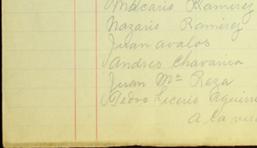 Macario Ramirez
Nazario Ramirez
Juan avalos
Andres Chavarria
Juan Ma Reza
Pedro Aguirre
A la